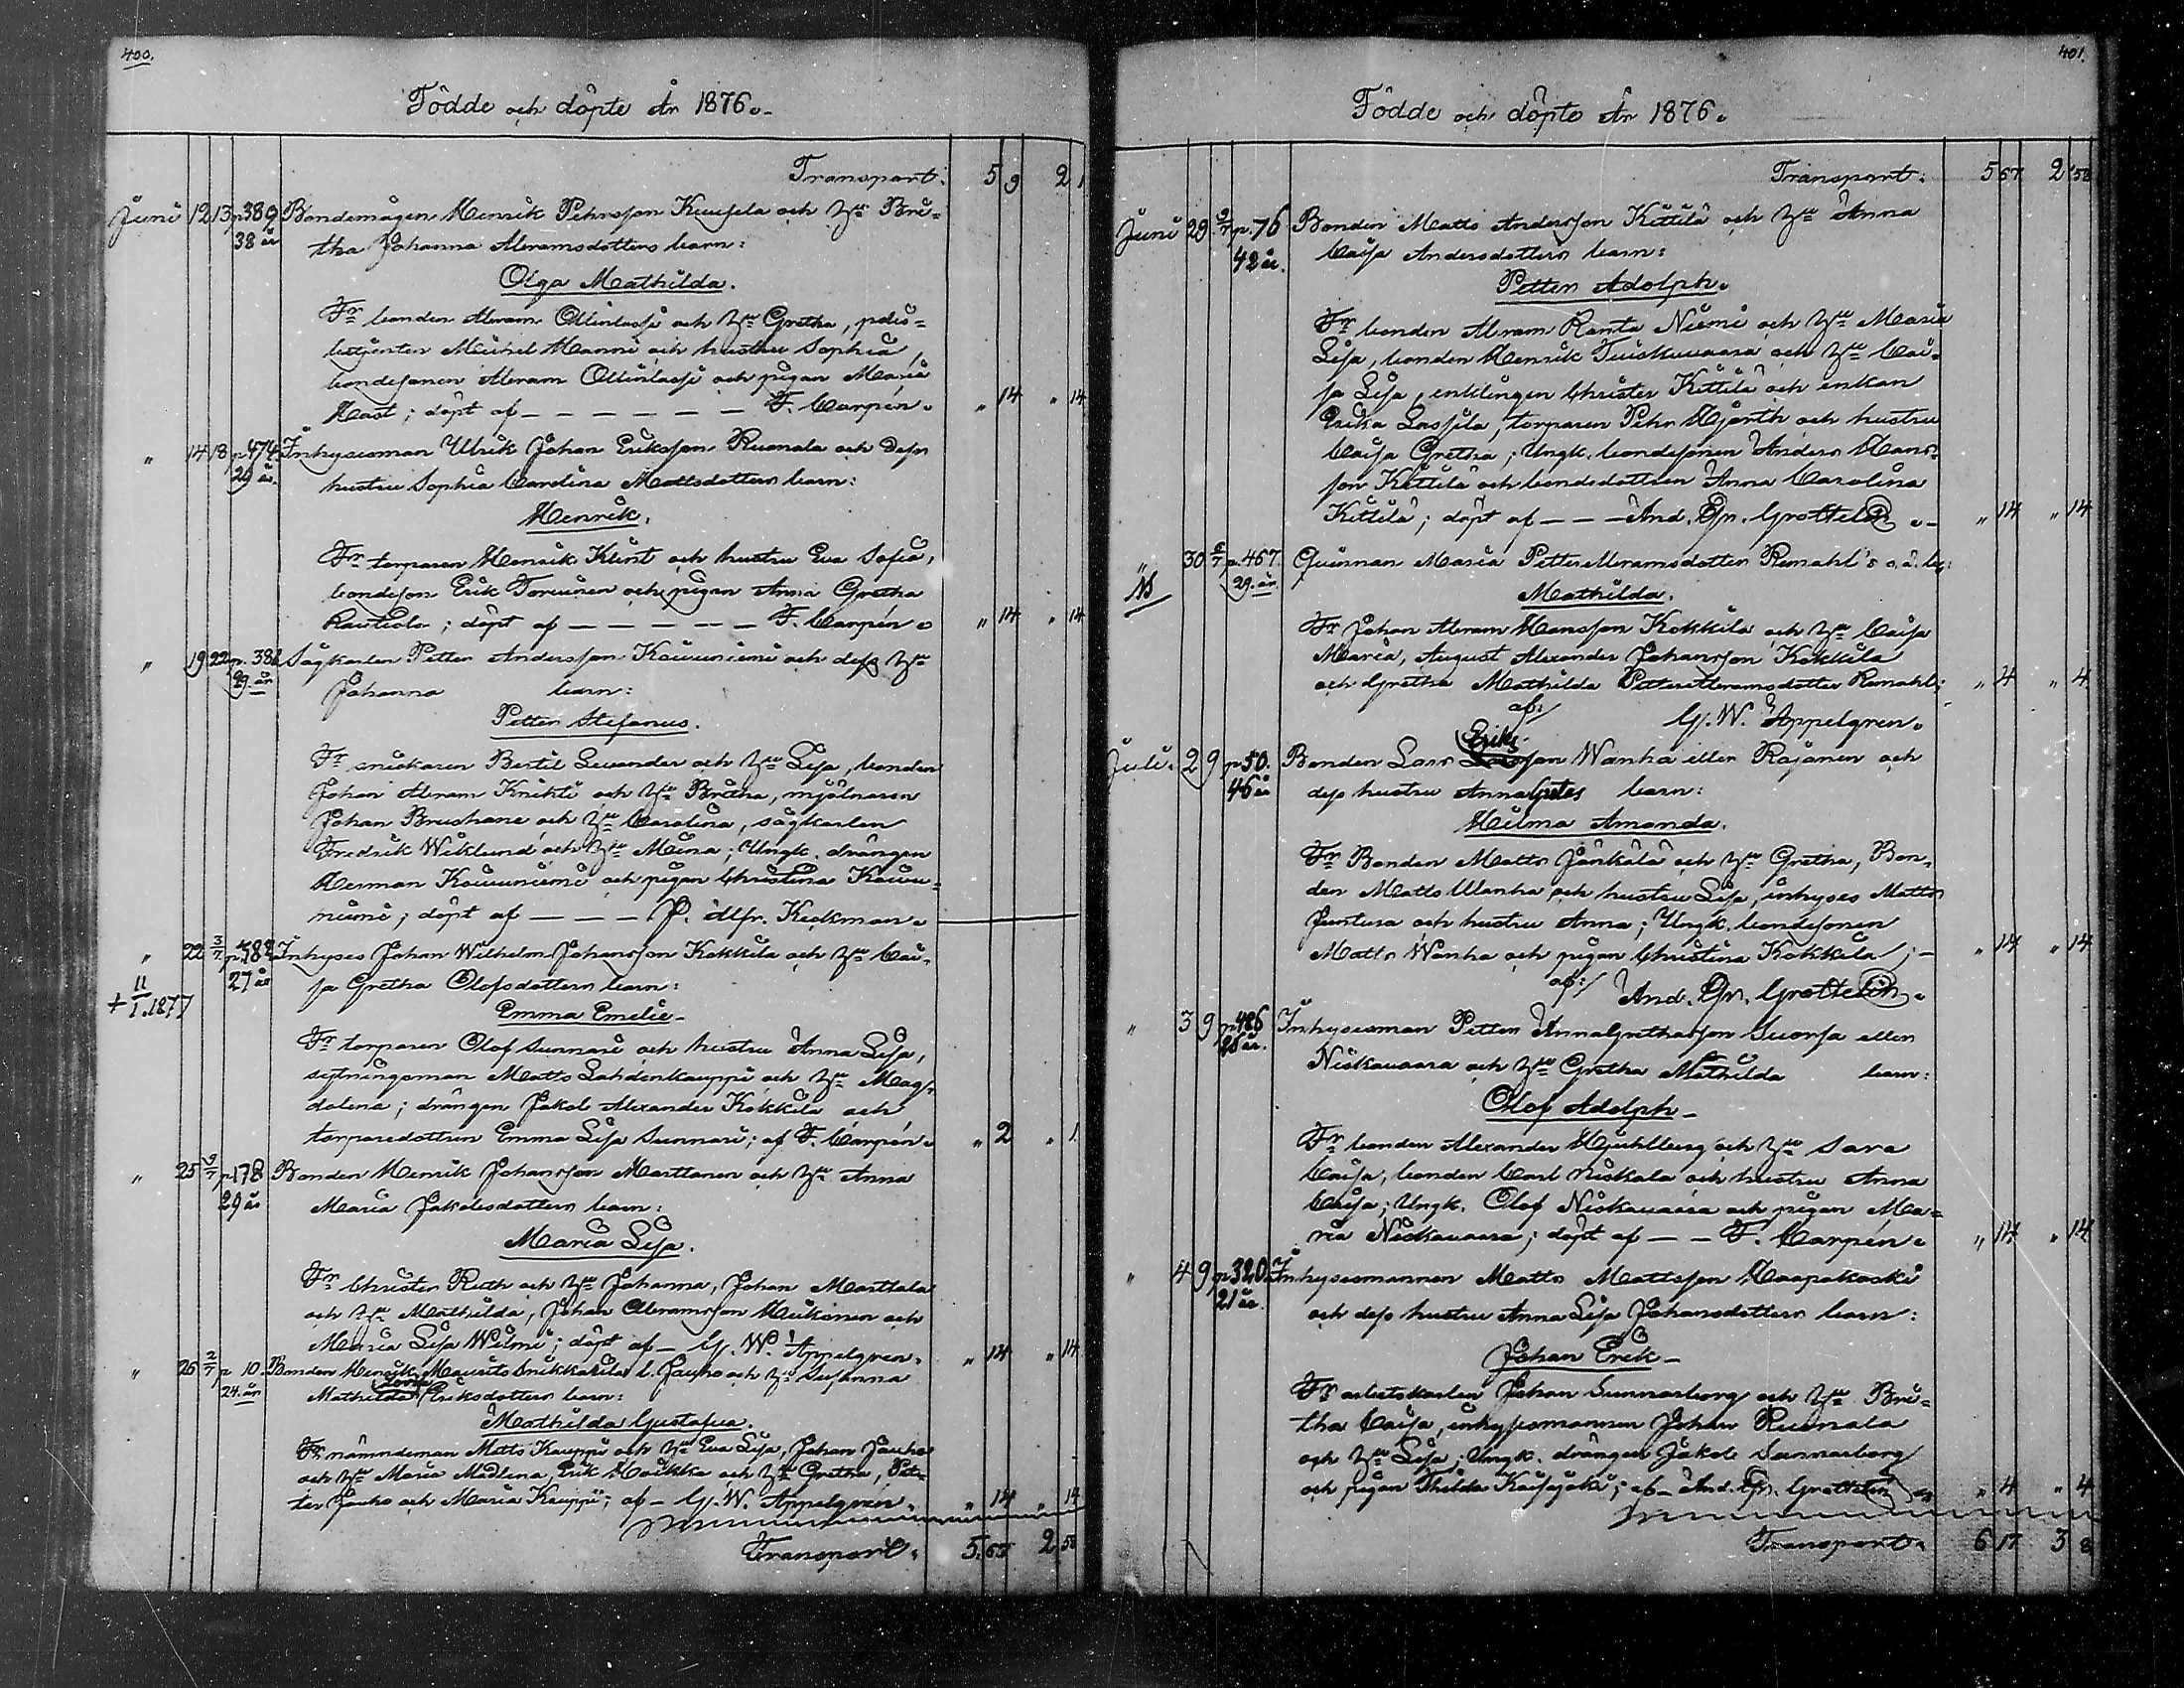 400.
Födde och döpte År 1876.
Transport. 5 9 2 1
Juni 12 13 p.389 Bondemågen Henrik Pehrsson Kuusela och Hu Bri-
38 år tha Johanna Abramsdotters barn:
Olga Mathilda.
Fr bonden Abram Ollinlassi och Hu Gretha, polis-
betjenten Michel Hanni och hustru Sophia
bondesonen Abram Ollinlassi och pigan Maria
Hast; döpt af — F. Carpén. " 14 " 14
" 14 18 p.474 Inhysesman Ulrik Johan Eriksson Ruonala och dess
29 år. hustru Sophia Carolina Mattsdotters barn:
Henrik.
Fr torparen Henrik Klint och hustru Eva Sofia,
bondeson Erik Torvinen och pigan Anna Gretha
Rautiola; döpt af — F. Carpén. " 14 " 14
" 19 22 p. 38 Sågkarlen Petter Andersson Kouvuniemi och dess Hu
29. år Johanna barn:
Petter Stefanus.
Fr snickaren Bertil Levander och Hu Lisa, bonden
Johan Abram Knihti och Hu Britha, mjölnaren
Johan Brushane och Hu Carolina, sågkarlen
Fredrik Wiklund och Hu Mina; Ungk. drängen
Herman Kouvuniemi och pigan Christina Kouvu-
niemi; döpt af — P. Alfr. Keckman.
" 22 3/7 p.482 Inhyses Johan Wilhelm Johansson Kokkila och Hu Cai-
27 år sa Gretha Olofsdotters barn:
+ 11/1.1877
Emma Emelie-
Fr torparen Olof Sunnari och hustru Anna Lisa,
sytningsman Matts Lahdenkauppi och Hu Mag-
dalena; drängen Jakob Alexander Kokkila och
torparedottren Emma Lisa Sunnari; af F. Carpén. " 2 " 1
" 25 9/7 p.178 Bonden Henrik Johansson Marttanen och Hu Anna
29 år Maria Jakobsdotters barn:
Maria Lisa.
Fr Christer Ruth och Hu Johanna, Johan Marttala
och Hu Mathilda, Johan Abramsson Heikinen och
Maria Lisa Wilmi; döpt af — G. W. Appelgren. " 14 " 14
" 26 2/7 p 10. Bonden Henrik Mauritsson l. Jauho och Hu Susanna
24. år Mathilda Lovisa Eriksdotters barn:
Mathilda Gustafva.
Fr nämndeman Matts Kauppi och Hu Eva Lisa, Johan Jauho
och Hu Maria Madlena, Erik Hoikka och Hu Gretha, Pet-
ter Jauho och Maria Kauppi; af — G. W. Appelgren. " 14 " 14
Transport. 5 2 58
401.
Födde och döpte År 1876.
Transport. 5 57 2 58
Juni 29 9/7 p.76 Bonden Matts Andersson Kittilä och Hu Anna
42 år. Caisa Andersdotters barn:
Petter Adolph.
Fr bonden Abram Ranta Niemi och Hu Maria
Lisa, bonden Henrik Tuiskuvaara och Hu Cai-
sa Lisa, enklingen Christer Kittilä och enkan
Erika Lassila, torparen Pehr Hjorth och hustru
Caisa Gretha; Ungk. bondesonen Anders Hans-
son Kittilä och bondedottren Anna Carolina
Kittilä; döpt af — And. Gr. Grottelin. " 14 " 14
" 30 p.467. Qvinnan Maria PetterAbramsdotter Remahl's o.ä. b:
29. år.
Mathilda.
Fr Johan Abram Hansson Kokkila och Hu Caisa
Maria, August Alexander Johansson Kokkila
och Gretha Mathilda PetterAbramsdotter Remahl; " 4 " 4
af: G. W. Appelgren.
Juli. 2 9 p50. Bonden Lars Eriksson Wanha eller Rajanen och
46 år dess hustru Anna barn:
Hilma Amanda.
Fr Bonden Matts Jänkälä och Hu Gretha, Bon-
den Matts Wanha och hustru Lisa, inhyses Matts
Juntura och hustru Anna; Ungk. bondesonen
Matts Wanha och pigan Christina Kokkila; " 14 " 14
af: And. Gr. Grottelin.
" 3 9 p486 Inhysesman Petter AnnaGrethasson Suorsa eller
25 år. Niskavaara och Hu Gretha Mathilda barn:
Olof Adolph-
Fr bonden Alexander Hjuhlberg och Hu Sara
Caisa, bonden Carl Niskala och hustru Anna
Caisa; Ungk. Olof Niskavaara och pigan Ma-
ria Niskavaara; döpt af — F. Carpén. " 14 " 14
" 4 9 p320. Inhysesmannen Matts Mattsson Haapakoski
21 år. och dess hustru Anna Lisa Johansdotters barn:
Johan Erik-
Fr arbetskarlen Johan Sunnarborg och Hu Bri-
tha Caisa, inhysesmannen Johan Ruonala
och Hu Lisa; Ungk. drängen Jakob Sunnarborg
och pigan Thilda Kaisajoki; af — And. Gr. Grottelin " 4 " 4
Transport. 6 17 3 8